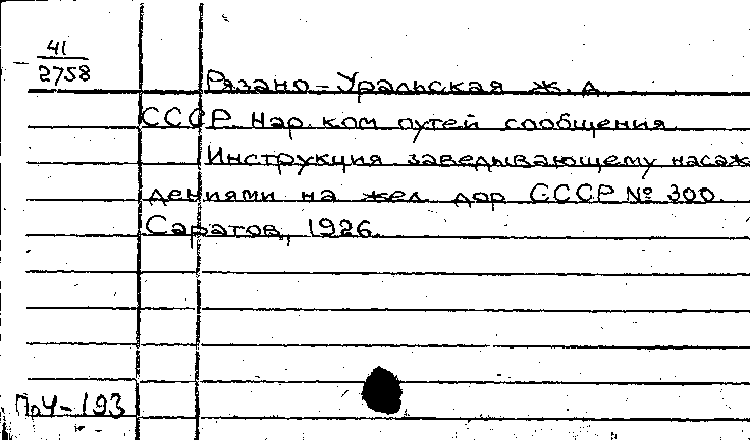 41
2758
Рязано-Уральская ж. д.
СССР. Нар. ком. путей сообщения.
Инструкция заведывающему насаж
дениями на жел. дор. СССР № 300.
Саратов, 1926.
ПрУ-193